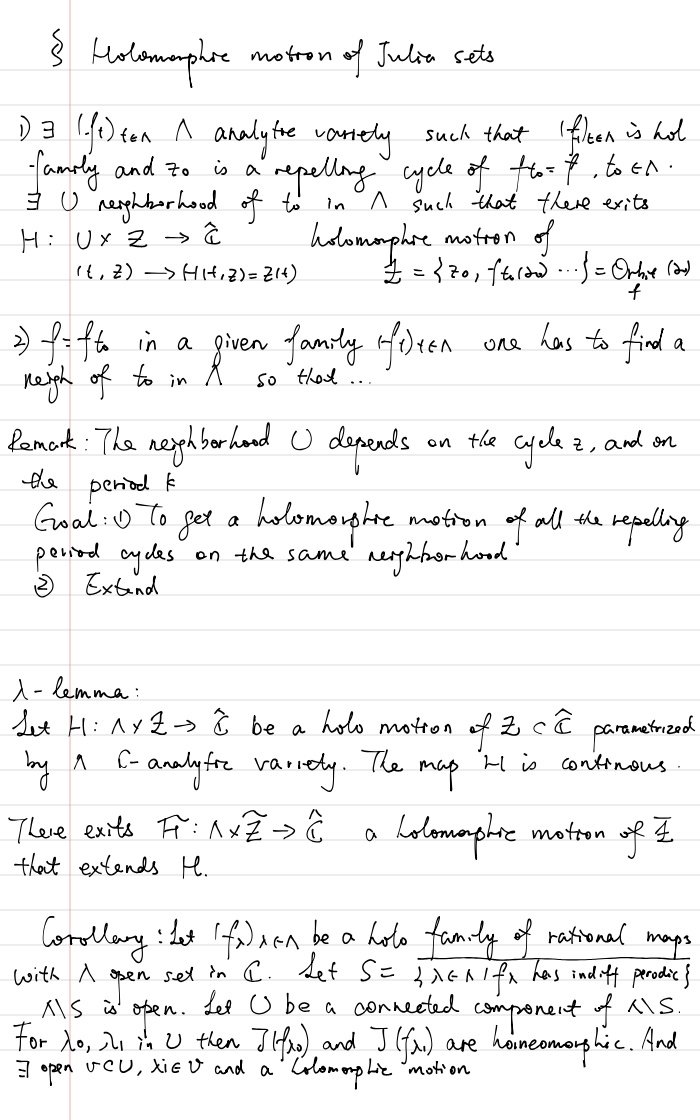 § Holomorphic motion of Julia sets
1) ∃ (f_t)_{t∈Λ} Λ analytic variety such that (f_t)_{t∈Λ} is hol
family and z_0 is a repelling cycle of f_{t_0} = f, t_0 ∈ Λ.
∃ U neighborhood of t_0 in Λ such that there exits
H: U × Z → Ĉ holomorphic motion of
(t, z) → H(t, z) = z(t) Z = {z_0, f_{t_0}(z_0) ...} = Orbit_f (z_0)
2) f = f_{t_0} in a given family (f_t)_{t∈Λ} one has to find a
neigh of t_0 in Λ so that ...
Remark: The neighborhood U depends on the cycle z, and on
the period k
Goal: ① To get a holomorphic motion of all the repelling
period cycles on the same neighborhood
② Extend
λ-lemma:
Let H: Λ × Z → Ĉ be a holo motion of Z ⊂ Ĉ parametrized
by Λ ℂ-analytic variety. The map H is continous.
There exits H̃: Λ × Z̃ → Ĉ a holomorphic motion of Z̄
that extends H.
Corollary: Let (f_λ)_{λ∈Λ} be a holo family of rational maps
with Λ open set in ℂ. Let S = {λ∈Λ | f_λ has indiff perodic}
Λ\S is open. Let U be a connected component of Λ\S.
For λ_0, λ_1 in U then J(f_{λ_0}) and J(f_{λ_1}) are homeomorphic. And
∃ open v⊂U, λ_i∈v and a holomorphic motion